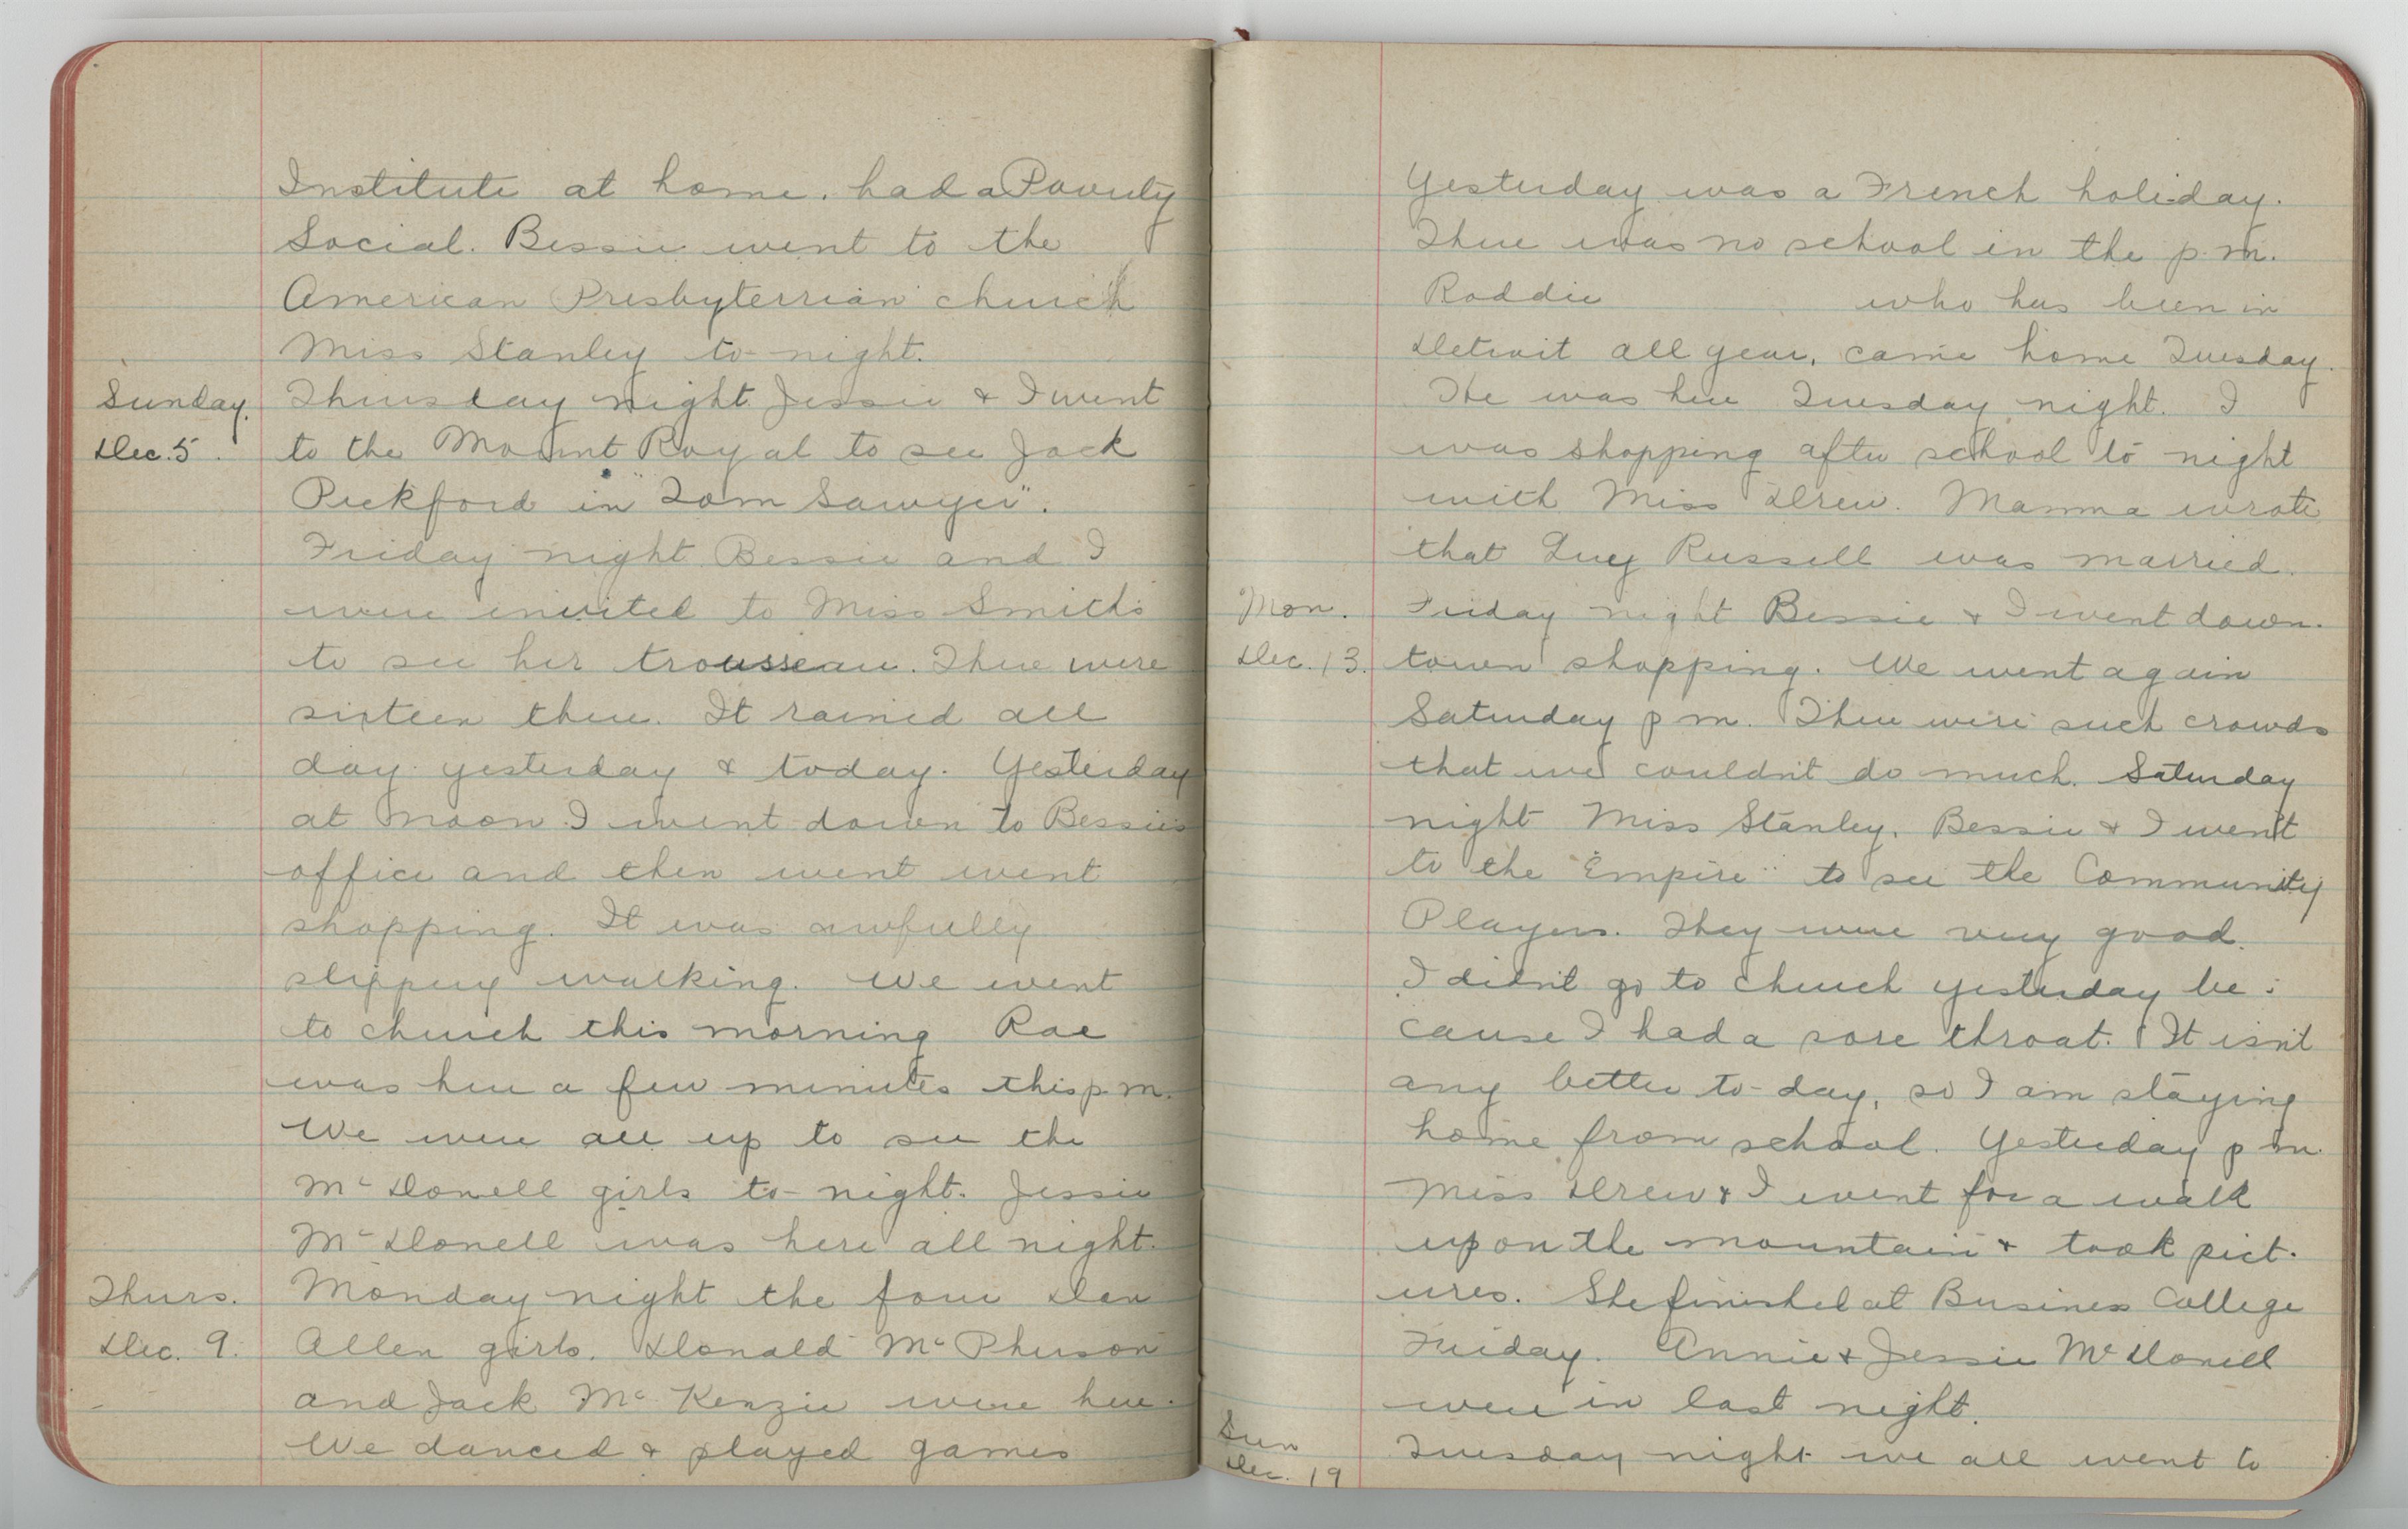 Institute at home. had a Poverty
Social. Bessie went to the
American Presbyterrian church
Miss Stanley to-night.
Sunday. Thursday night Jessie & I went
Dec. 5. to the Mount Royal to see Jack
Pickford in "Tom Sawyer".
Friday night Bessie and I
were invited to Miss Smith's
to see her trousseau. There were
sixteen there. It rained all
day yesterday & today. Yesterday
at noon I went down to Bessie's
office and then went went
shopping. It was awfully
slippery walking. We went
to church this morning Rae
was here a few minutes this p.m.
We were all up to see the
McDonell girls to-night. Jessie
McDonell was here all night.
Thurs. Monday night the four Dan
Dec. 9. Allen girls. Donald McPherson
and Jack McKenzie were here.
We danced & played games
Yesterday was a French holiday.
There was no school in the p.m.
Roddie who has been in
Detroit all year, came home Tuesday.
He was here Tuesday night. I
was shopping after school to night
with Miss Drew. Mamma wrote
that Lucy Russell was married.
Mon. Friday night Bessie & I went down.
Dec. 13. town shopping. We went again
Saturday p m. There were such crowds
that we couldn't do much. Saturday
night Miss Stanley, Bessie & I went
to the "Empire" to see the Community
Players. They were very good.
I didn't go to church yesterday be:
cause I had a sore throat. It isn't
any better to-day, so I am staying
home from school. Yesterday p m.
Miss Drew & I went for a walk
up on the mountain & took pict.
ures. She finished at Business College
Friday. Annie & Jessie McDonell
were in last night.
Sun Tuesday night we all went to
Dec. 19